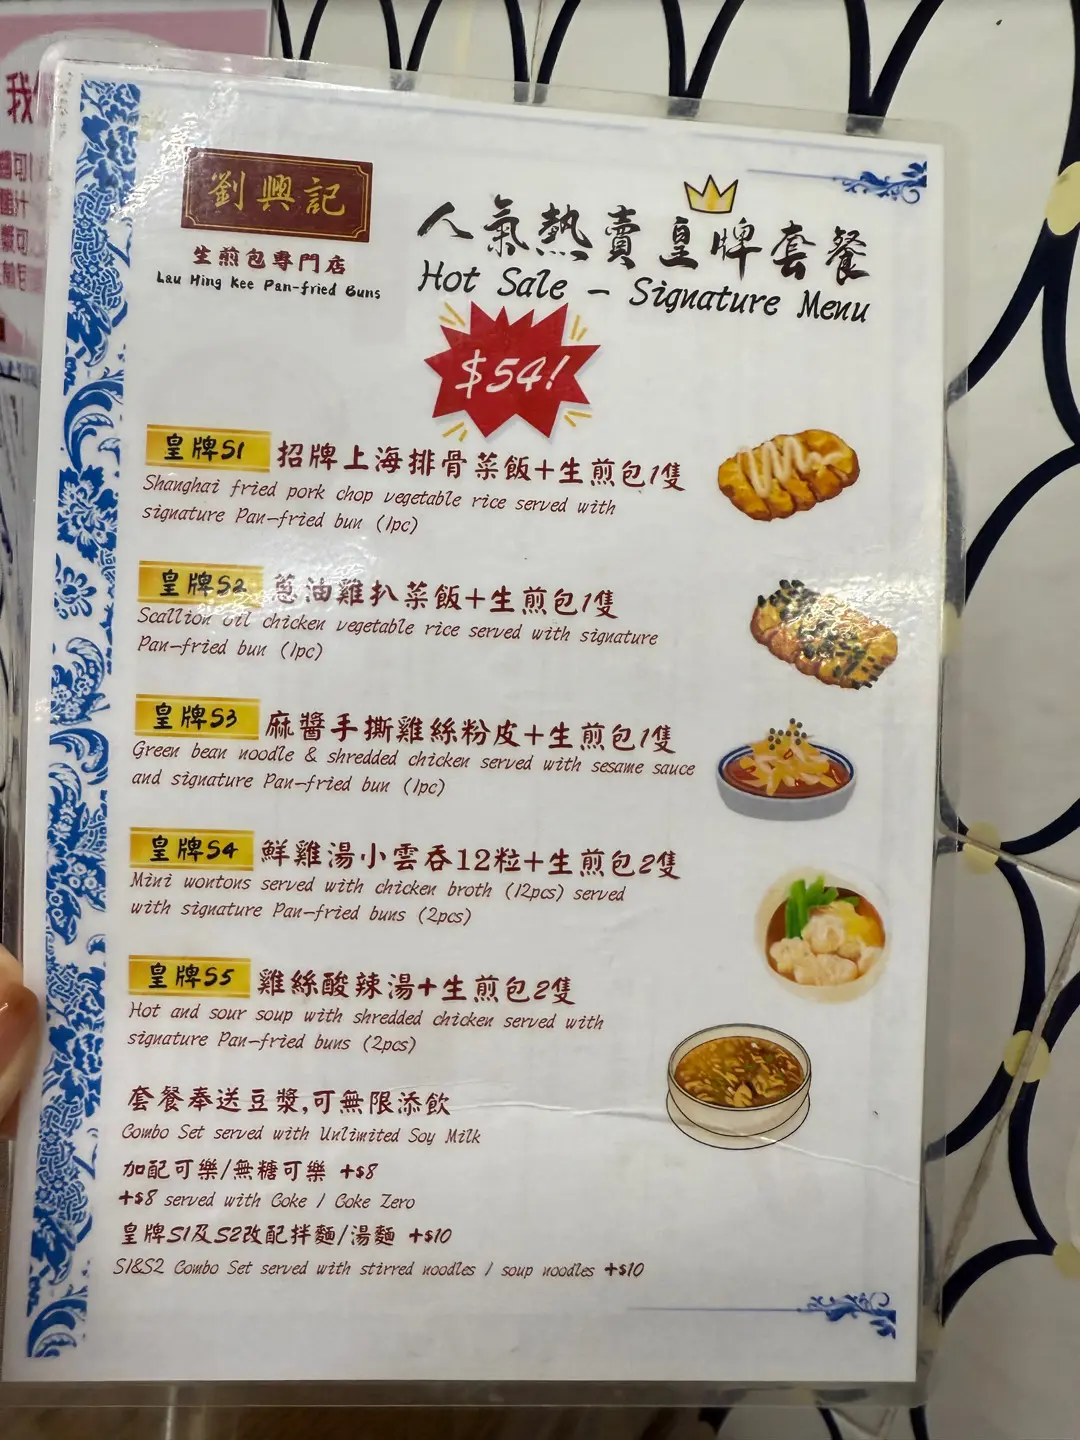 劉興記
生煎包專門店
Lau Hing Kee Pan-fried Buns
人氣熱賣皇牌套餐
Hot Sale - Signature Menu
$54!
皇牌S1 招牌上海排骨菜飯+生煎包1隻
Shanghai fried pork chop vegetable rice served with
signature Pan-fried bun (1pc)
皇牌S2 蔥油雞扒菜飯+生煎包1隻
Scallion oil chicken vegetable rice served with signature
Pan-fried bun (1pc)
皇牌S3 麻醬手撕雞絲粉皮+生煎包1隻
Green bean noodle & shredded chicken served with sesame sauce
and signature Pan-fried bun (1pc)
皇牌S4 鮮雞湯小雲吞12粒+生煎包2隻
Mini wontons served with chicken broth (12pcs) served
with signature Pan-fried buns (2pcs)
皇牌S5 雞絲酸辣湯+生煎包2隻
Hot and sour soup with shredded chicken served with
signature Pan-fried buns (2pcs)
套餐奉送豆漿,可無限添飲
Combo Set served with Unlimited Soy Milk
加配可樂/無糖可樂 +$8
+$8 served with Coke / Coke Zero
皇牌S1及S2改配拌麵/湯麵 +$10
S1&S2 Combo Set served with stirred noodles / soup noodles +$10